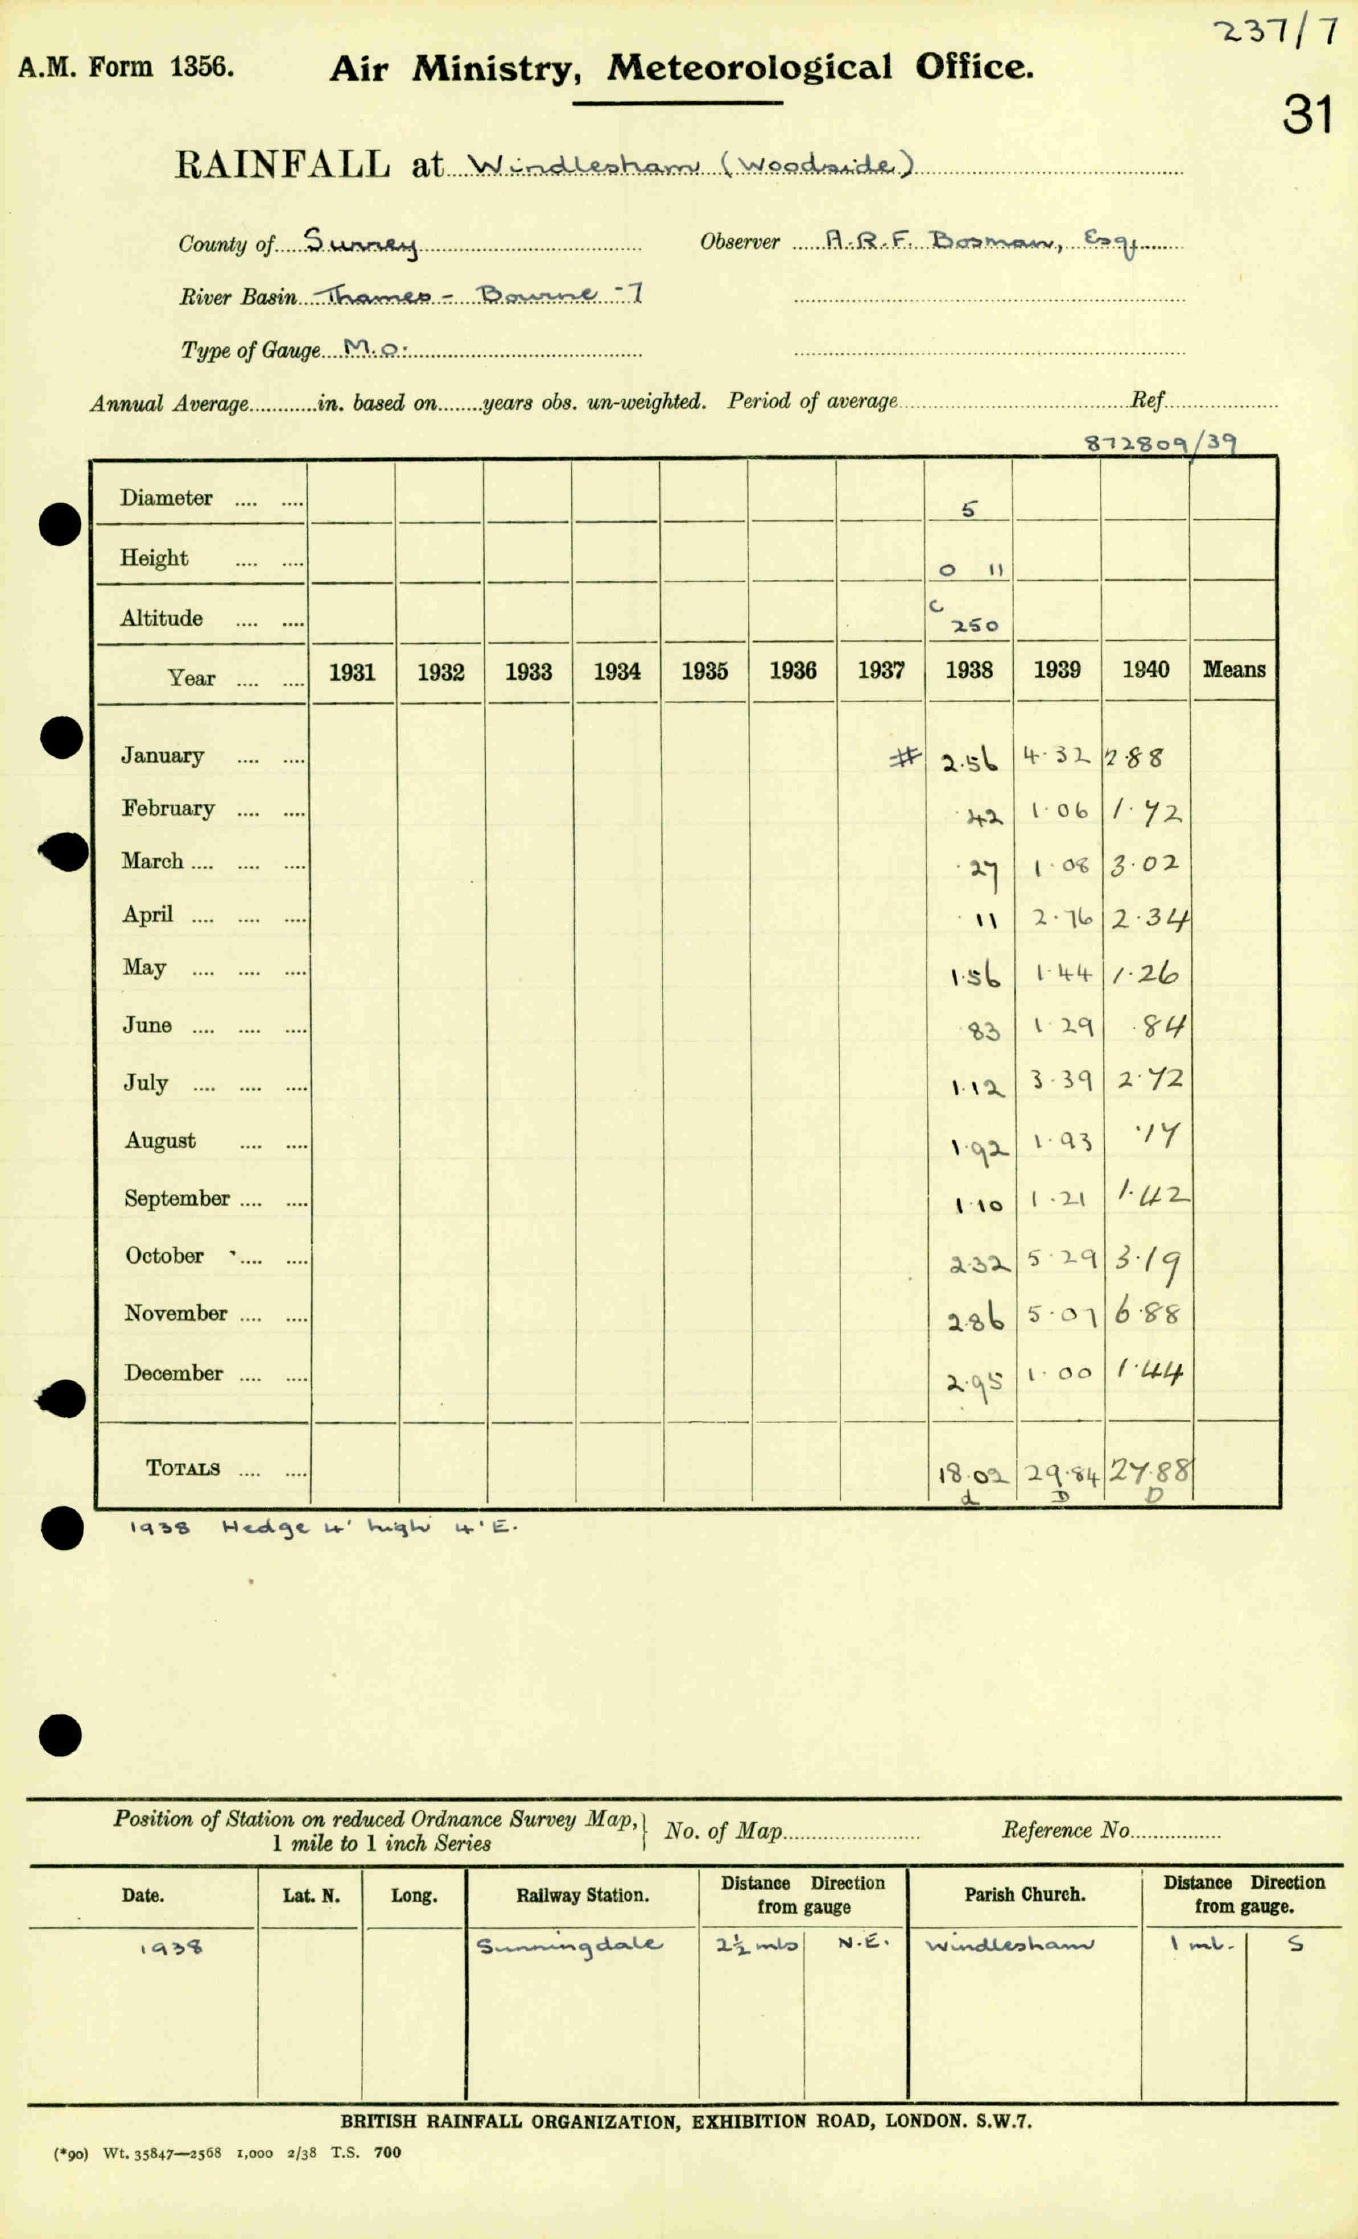 237/7
A.M. Form 1356. Air Ministry, Meteorological Office.
31
RAINFALL at Windlesham (Woodside)
County of Surrey Observer A.R.F. Bosman, Esq.,
River Basin Thames - Bourne - 7
Type of Gauge M.O.
Annual Average............in. based on........years obs. un-weighted. Period of average........Ref........
872809/39
Diameter .... .... 5
Height .... .... 0 11
Altitude .... .... C 250
Year .... .... 1931 1932 1933 1934 1935 1936 1937 1938 1939 1940 Means
January .... .... # 2.56 4.32 2.88
February .... .... .42 1.06 1.72
March .... .... .... .27 1.08 3.02
April .... .... .... .11 2.76 2.34
May .... .... .... 1.56 1.44 1.26
June .... .... .... .83 1.29 .84
July .... .... .... 1.12 3.39 2.72
August .... .... 1.92 1.93 .17
September .... .... 1.10 1.21 1.42
October .... .... 2.32 5.29 3.19
November .... .... 2.86 5.07 6.88
December .... .... 2.95 1.00 1.44
TOTALS .... .... 18.02 29.84 27.88
d D D
1938 Hedge 4' high 4' E.
Position of Station on reduced Ordnance Survey Map, 1 mile to 1 inch Series } No. of Map........ Reference No........
Date. Lat. N. Long. Railway Station. Distance Direction from gauge Parish Church. Distance Direction from gauge.
1938 Sunningdale 2½ mls N.E. Windlesham 1 ml. S
BRITISH RAINFALL ORGANIZATION, EXHIBITION ROAD, LONDON. S.W.7.
(*90) Wt. 35847—2568 1,000 2/38 T.S. 700